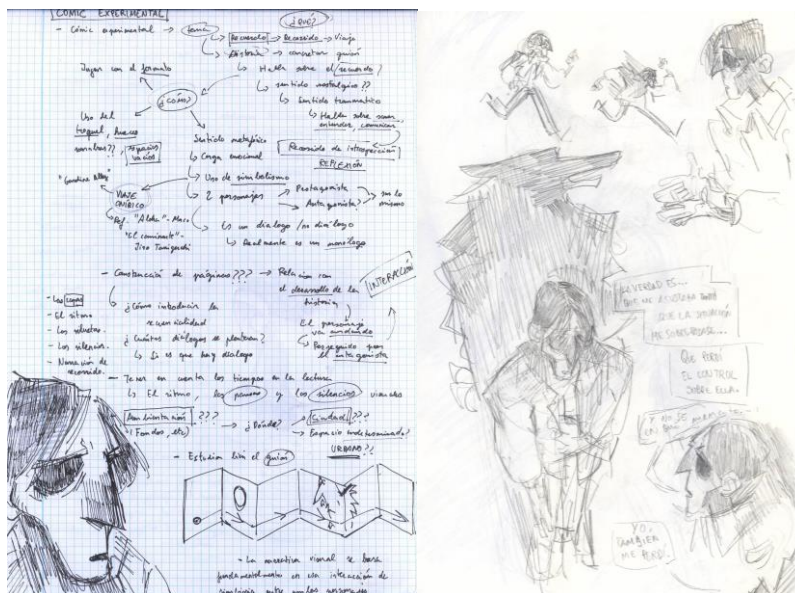 CÓMIC EXPERIMENTAL
¿QUÉ?
- Cómic experimental → tema
↳ Recuerdo → Recorrido → Viaje
↳ Historia → concretar guión
Jugar con el formato
↳ Habla sobre el recuerdo?
↳ sentido nostálgico??
↳ Sentido traumático
¿CÓMO?
↳ Habla sobre
entender, comunicar
Uso del
troquel, huecos
sombras??, espacios
vacíos
Sentido metafórico
↳ Carga emocional
Recorrido de introspección
REFLEXIÓN
↳ Uso de simbolismo
VIAJE
ONÍRICO
↳ 2 personajes
Protagonista
Antagonista?
son lo
mismo
↳ Ref. "Aldea" -
"El caminante" -
Jiro Taniguchi
↳ Es un diálogo / no diálogo
↳ Realmente es un monólogo
INTERACCIÓN
- Construcción de páginas??? → Relación con
el desarrollo de la
historia
- El ritmo
- Las siluetas.
- Los silencios.
- Narración de
recorrido.
↳ ¿Cómo introducir la
secuencialidad
¿Cuántos diálogos se plantean?
↳ Si es que hay diálogo
El personaje
va andando
↳ Perseguido por
el antagonista
- Tener en cuenta los tiempos en la lectura
↳ El ritmo, las pausas y los silencios
Ambientación ???
(Fondos, etc)
→ ¿Dónde?
Ciudad???
Espacio indeterminado?
URBANO?!
- Estudiar bien el guión
- La narrativa visual se basa
fundamentalmente en esa interacción de
entre ambos personajes
LA VERDAD ES...
QUE ME ASUSTABA
QUE LA SITUACIÓN
ME SOBREPASASE...
QUE PERDÍ
EL CONTROL
SOBRE ELLA.
Y NO SE
YO,
TAMBIÉN
ME PERDÍ.